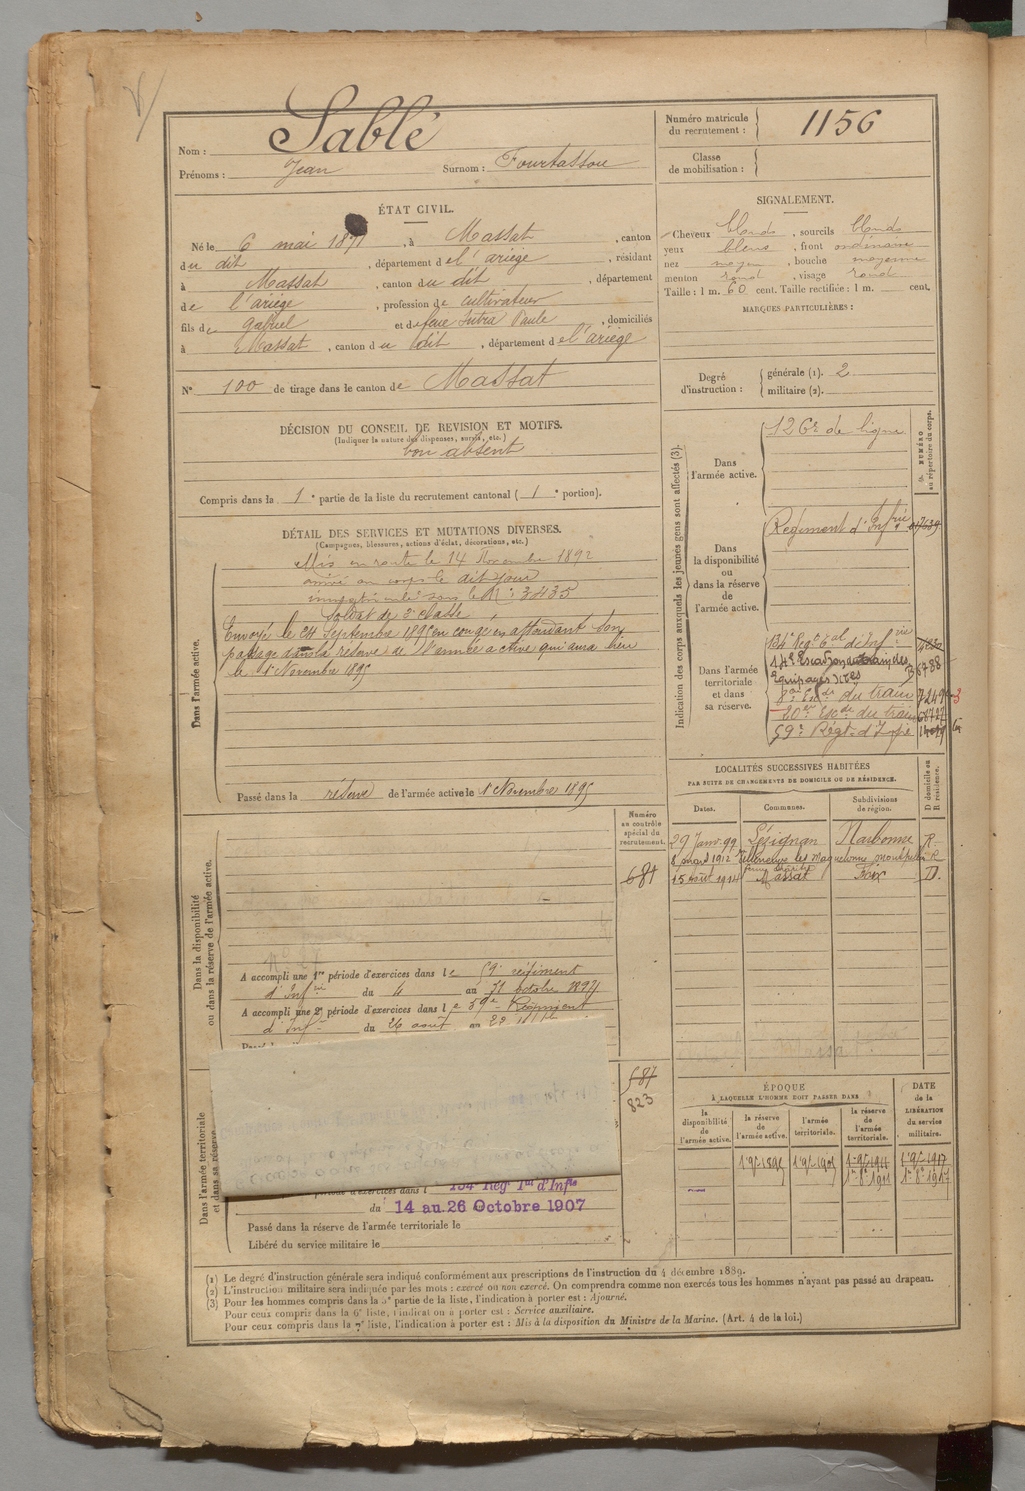 Nom : Sablé
Prénoms : Jean Surnom : Fourtassou
Numéro matricule du recrutement : 1156
Classe de mobilisation :
ÉTAT CIVIL.
Né le 6 mai 1871, à Massat, canton
du dit, département de l'ariège, résidant
à Massat, canton du dit, département
de l'ariège, profession de cultivateur
fils de Gabriel et de feue Paule, domiciliés
à Massat, canton du dit, département de l'ariège
N° 100 de tirage dans le canton de Massat
SIGNALEMENT.
Cheveux blonds, sourcils blonds
yeux bleus, front ordinaire
nez moyen, bouche moyenne
menton rond, visage rond
Taille : 1 m. 60 cent. Taille rectifiée : 1 m. cent.
MARQUES PARTICULIÈRES :
Degré d'instruction : générale (1). 2
militaire (2).
DÉCISION DU CONSEIL DE REVISION ET MOTIFS.
(Indiquer la nature des dispenses, sursis, etc.)
bon absent
Compris dans la 1e partie de la liste du recrutement cantonal (1e portion).
DÉTAIL DES SERVICES ET MUTATIONS DIVERSES.
(Campagnes, blessures, actions d'éclat, décorations, etc.)
Dans l'armée active.
Mis en route le 14 Novembre 1892
arrivé au corps le dit jour
immatriculé sous le N° 3435
Soldat de 2e classe
Envoyé le 24 Septembre 1895 en congé en attendant son
passage dans la réserve de l'armée active qui aura lieu
le 1er Novembre 1895
Passé dans la réserve de l'armée active le 1er Novembre 1895
Indication des corps auxquels les jeunes gens sont affectés (3).
NUMÉRO au répertoire du corps.
Dans l'armée active.
126e de ligne
Dans la disponibilité ou dans la réserve de l'armée active.
Régiment d'Infrie
Dans l'armée territoriale et dans sa réserve.
134e Régt tal d'Infrie
14e Escadron du train des
équipages Mres 6788
Escon du train 7249
20e Escon du train
59e Régt d'Infie
LOCALITÉS SUCCESSIVES HABITÉES
PAR SUITE DE CHANGEMENTS DE DOMICILE OU DE RÉSIDENCE.
Dates. Communes. Subdivisions de région. D domicile ou R résidence.
29 Janv. 99 Lézignan Narbonne R.
8 mars 1912 Villeneuve les Maguelonne Montpellier R
15 Août 1914 Massat Foix D.
Numéro au contrôle spécial du recrutement.
681
Dans la disponibilité ou dans la réserve de l'armée active.
A accompli une 1re période d'exercices dans le 59e régiment
d'Infrie du 4 au 31 octobre
A accompli une 2e période d'exercices dans le 59e Régiment
d'Infie du 26 août au 22
Dans l'armée territoriale et dans sa réserve.
587
823
période d'exercices dans l 134e Rég. Tal d'Infie
du 14 au 26 Octobre 1907
Passé dans la réserve de l'armée territoriale le
Libéré du service militaire le
ÉPOQUE
À LAQUELLE L'HOMME DOIT PASSER DANS
la disponibilité de l'armée active.
la réserve de l'armée active.
l'armée territoriale.
la réserve de l'armée territoriale.
DATE de la LIBÉRATION du service militaire.
1er 9bre 1895 1er 9bre 1905 1er 9bre 1911 1er 9bre 1917
1er 8bre 1911 1er 8bre 1917
(1) Le degré d'instruction générale sera indiqué conformément aux prescriptions de l'instruction du 4 décembre 1889.
(2) L'instruction militaire sera indiquée par les mots : exercé ou non exercé. On comprendra comme non exercés tous les hommes n'ayant pas passé au drapeau.
(3) Pour les hommes compris dans la 5e partie de la liste, l'indication à porter est : Ajourné.
Pour ceux compris dans la 6e liste, l'indication à porter est : Service auxiliaire.
Pour ceux compris dans la 7e liste, l'indication à porter est : Mis à la disposition du Ministre de la Marine. (Art. 4 de la loi.)